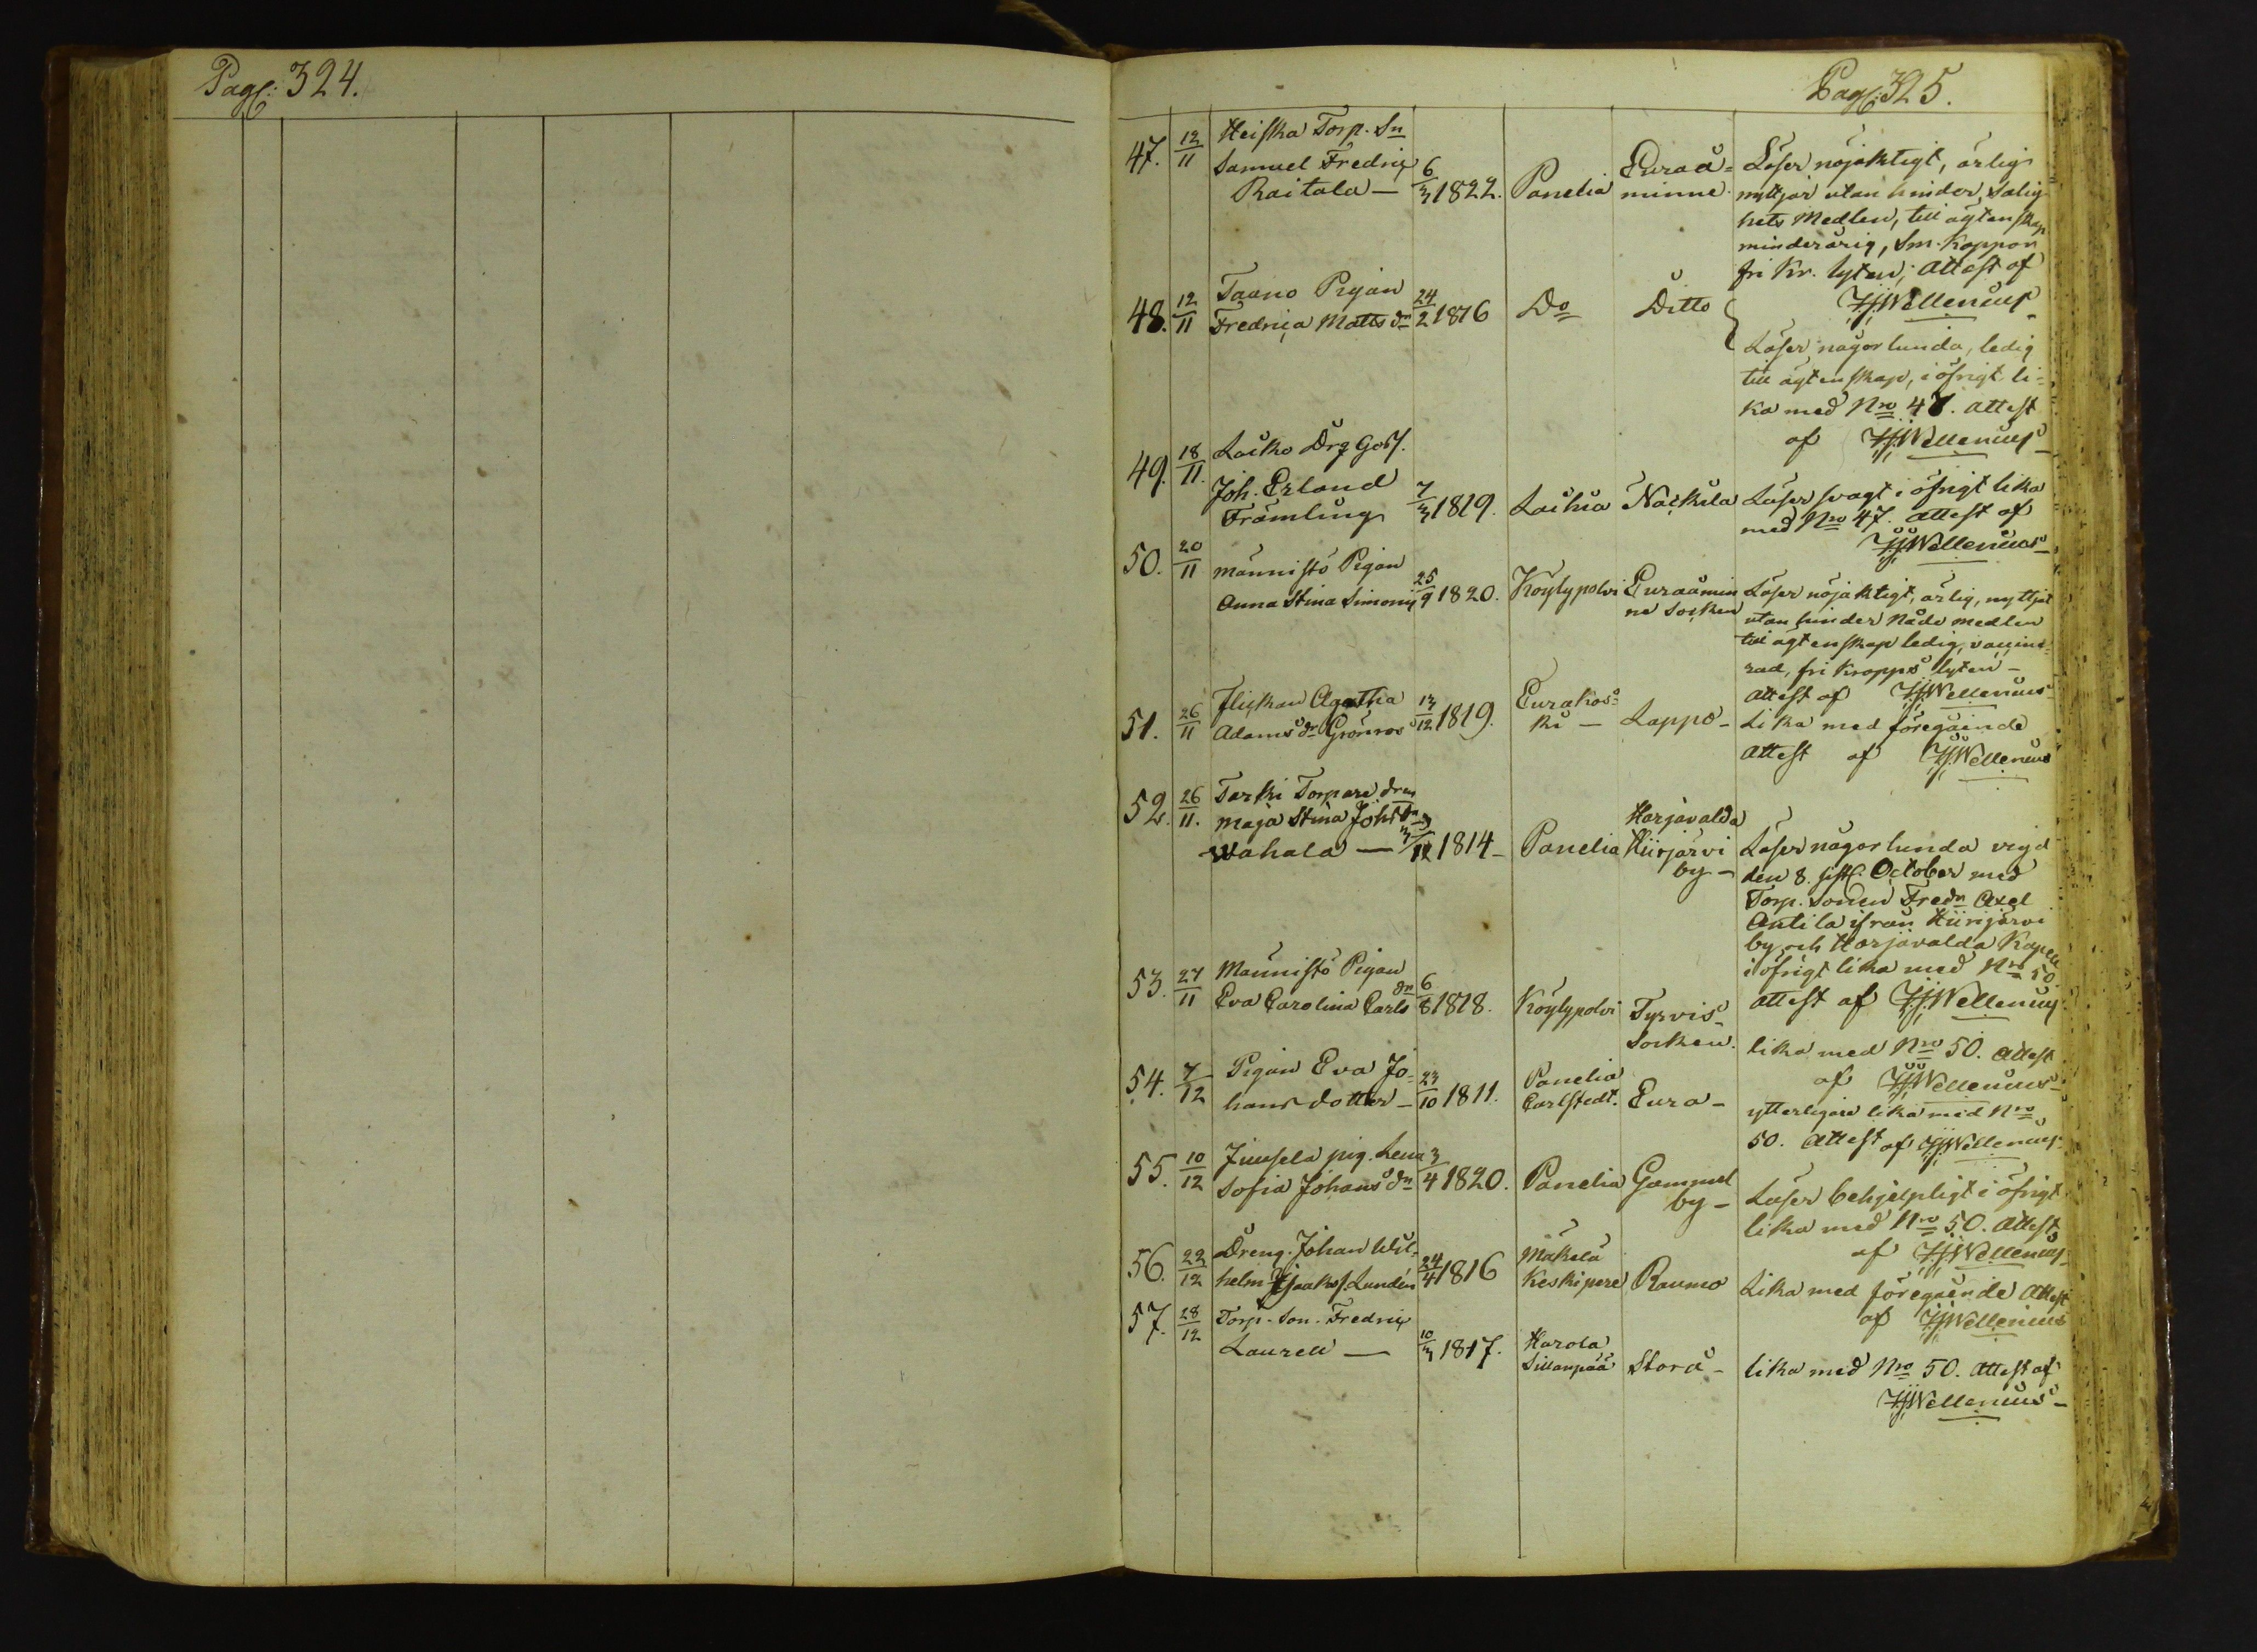 Pag: 324.
Pag: 325.
47. 12/11 Heiska Torp. Sn
Samuel Fredric
Raitala — 6/3 1822. Panelia Euraå=
minne.
Läser nöjaktigt, ärlig
nyttjar utan hinder, Salig-
hets Medlen, till ägtenskap
minderårig, Sm. Koppor
fri Kr. lyten; attest af
JJWellenius
48. 12/11 Taano Pigan
Fredrica Matts dr 24/2 1816 Do Ditto
Läser någorlunda, ledig
till ägtenskap, i öfrigt li=
ka med Nro 47. attest
af JJWellenius
49. 18/11. Laiko Drg Goss.
Joh. Erland
Främling 7/3 1819. Laihia Nackila
Läser svagt i öfrigt lika
med Nro 47. attest af
JJWellenius
50. 20/11 männistö Pigan
Anna Stina Simonis 25/9 1820. Köylypolvi Euraåmin
ne Socken
Läser nöjaktigt, ärlig, nyttjat
utan hinder Nåde medlen
till ägtenskap ledig, vaccine=
rad, fri kropps lyten —
attest af JJWellenius
51. 26/11 Flickan Agatha
Adams dr Grönroos 13/12 1819. Eurakos=
ki — Lappo —
Lika med föregående
attest af JJWellenius
52. 26/11. Tarki Torpare dren
maja Stina Johs dr
Wahala — 3/11 1814 — Panelia
Harjavalda
Hiirjärvi
by —
Läser någorlunda vigd
den 8. sistl. October med
Torp. Sonen Fredr Axel
Antila ifrån Hiirijärvi
by och Harjavalda Kapell
i öfrigt lika med Nro 50.
attest af JJWellenius
53. 27/11 Männistö Pigan
Eva Carolina Carls dr 6/8 1818. Köylypolvi Tyrvis
Socken.
lika med Nro 50. attest
af JJWellenius
54. 7/12 Pigan Eva Jo=
hans dotter — 23/10 1811. Panelia
Carlstedt. Eura —
ytterligare lika med Nro
50. attest af JJWellenius
55. 10/12 Juusela pig. Lena
Sofia Johans dr 3/4 1820. Panelia Gammel
by —
Läser behjelpligt i öfrigt
lika med Nro 50. attest
af JJWellenius
56. 22/12 Dreng. Johan Wil=
helm Isaaks. Lundén 24/4 1816 Mäkelä
Keskipere Raumo
Lika med föregående attest
af JJWellenius
57. 28/12 Torp. Son. Fredric
Laurell — 10/3 1817. Harola
Sillanpää Storå —
lika med Nro 50. attest af
JJWellenius —